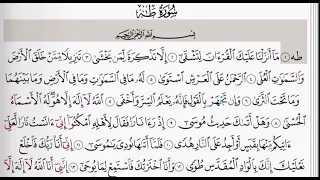 سُورَةُ طٰهٰ
بِسْمِ اللَّهِ الرَّحْمَٰنِ الرَّحِيمِ
طه ۝١ مَا أَنزَلْنَا عَلَيْكَ الْقُرْءَانَ لِتَشْقَىٰ ۝٢ إِلَّا تَذْكِرَةً لِّمَن يَخْشَىٰ ۝٣ تَنزِيلًا مِّمَّنْ خَلَقَ الْأَرْضَ
وَالسَّمَاوَاتِ الْعُلَى ۝٤ الرَّحْمَٰنُ عَلَى الْعَرْشِ اسْتَوَىٰ ۝٥ لَهُ مَا فِي السَّمَاوَاتِ وَمَا فِي الْأَرْضِ وَمَا بَيْنَهُمَا
وَمَا تَحْتَ الثَّرَىٰ ۝٦ وَإِن تَجْهَرْ بِالْقَوْلِ فَإِنَّهُ يَعْلَمُ السِّرَّ وَأَخْفَى ۝٧ اللَّهُ لَا إِلَٰهَ إِلَّا هُوَ لَهُ الْأَسْمَاءُ
الْحُسْنَىٰ ۝٨ وَهَلْ أَتَاكَ حَدِيثُ مُوسَىٰ ۝٩ إِذْ رَءَا نَارًا فَقَالَ لِأَهْلِهِ امْكُثُوا إِنِّي ءَانَسْتُ نَارًا لَّعَلِّي
ءَاتِيكُم مِّنْهَا بِقَبَسٍ أَوْ أَجِدُ عَلَى النَّارِ هُدًى ۝١٠ فَلَمَّا أَتَاهَا نُودِيَ يَا مُوسَىٰ ۝١١ إِنِّي أَنَا رَبُّكَ فَاخْلَعْ
نَعْلَيْكَ إِنَّكَ بِالْوَادِ الْمُقَدَّسِ طُوًى ۝١٢ وَأَنَا اخْتَرْتُكَ فَاسْتَمِعْ لِمَا يُوحَىٰ ۝١٣ إِنَّنِي أَنَا اللَّهُ لَا إِلَٰهَ إِلَّا